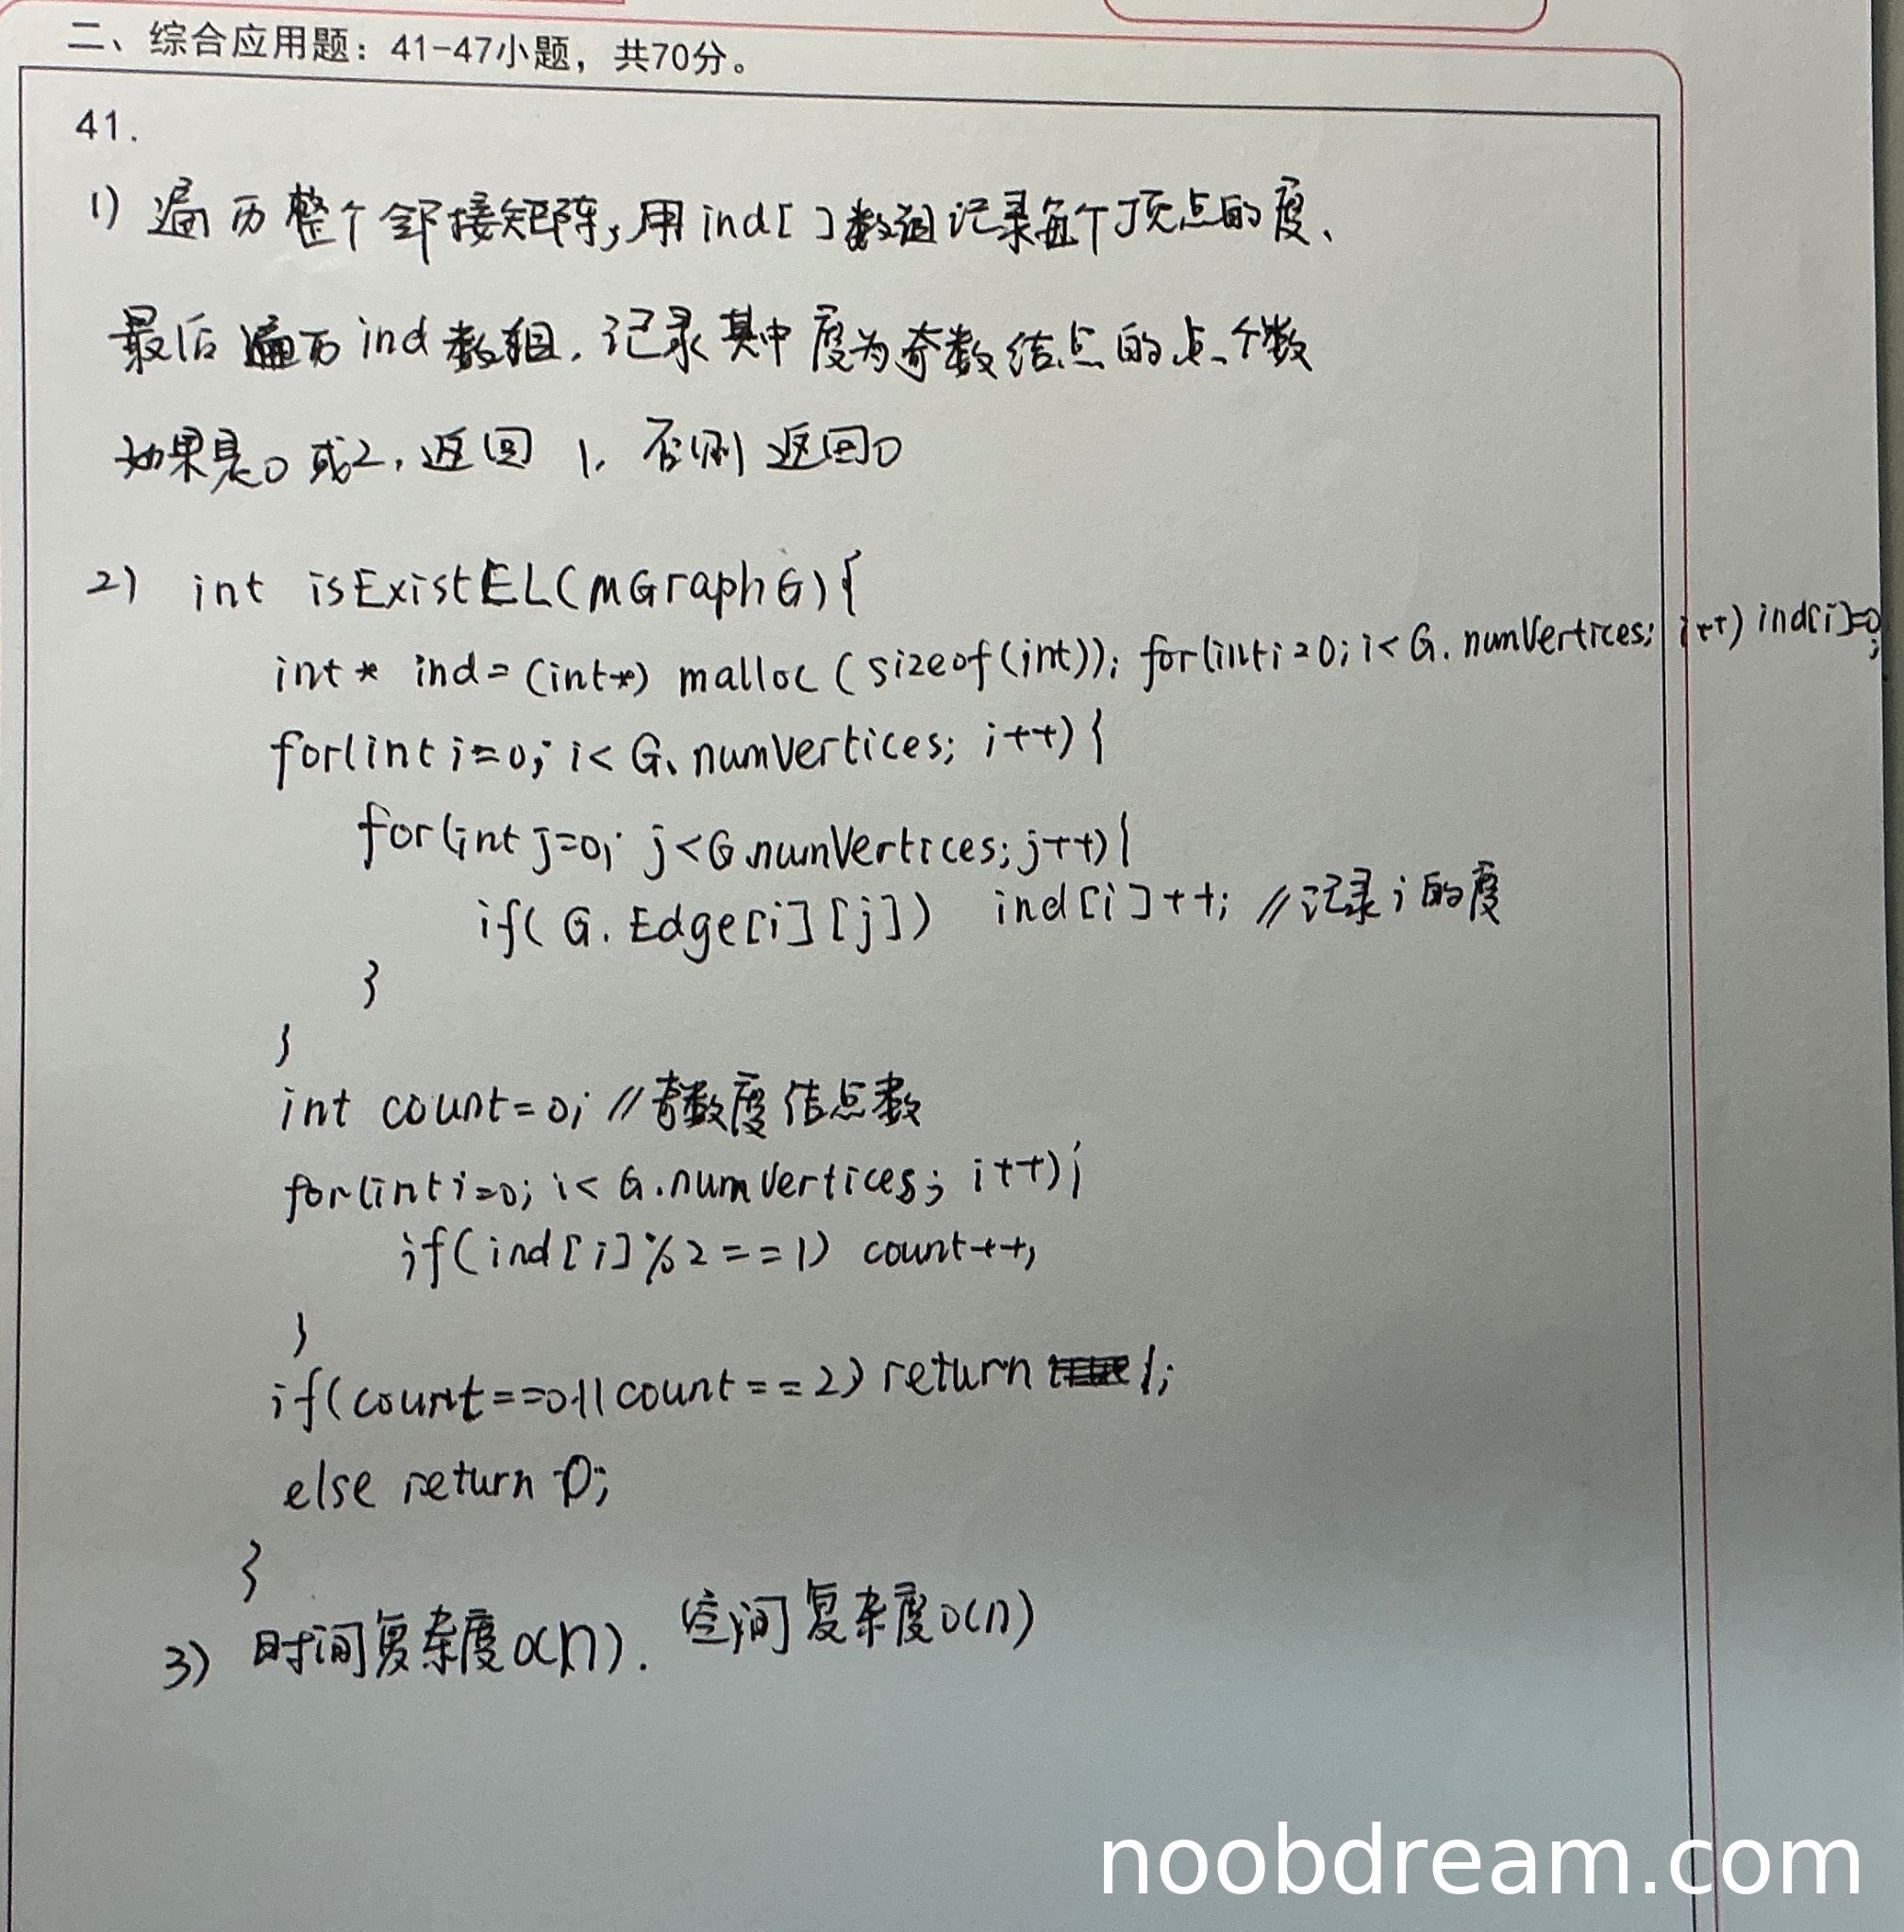 二、综合应用题：41-47小题，共70分。
41.
1) 遍历整个邻接矩阵，用ind[ ]数组记录每个顶点的度、
最后遍历ind数组，记录其中度为奇数结点的点个数
如果是0或2，返回 1，否则返回0
2) int isExistEL(MGraph G){
int* ind=(int*) malloc(sizeof(int)); for(int i=0; i<G.numVertices; i++) ind[i]=0;
for(int i=0; i<G.numVertices; i++){
for(int j=0; j<G.numVertices; j++){
if(G.Edge[i][j]) ind[i]++; //记录i的度
}
}
int count=0; //奇数度结点数
for(int i=0; i<G.numVertices; i++){
if(ind[i]%2==1) count++;
}
if(count==0||count==2) return 1;
else return 0;
}
3) 时间复杂度O(n). 空间复杂度O(n)
noobdream.com